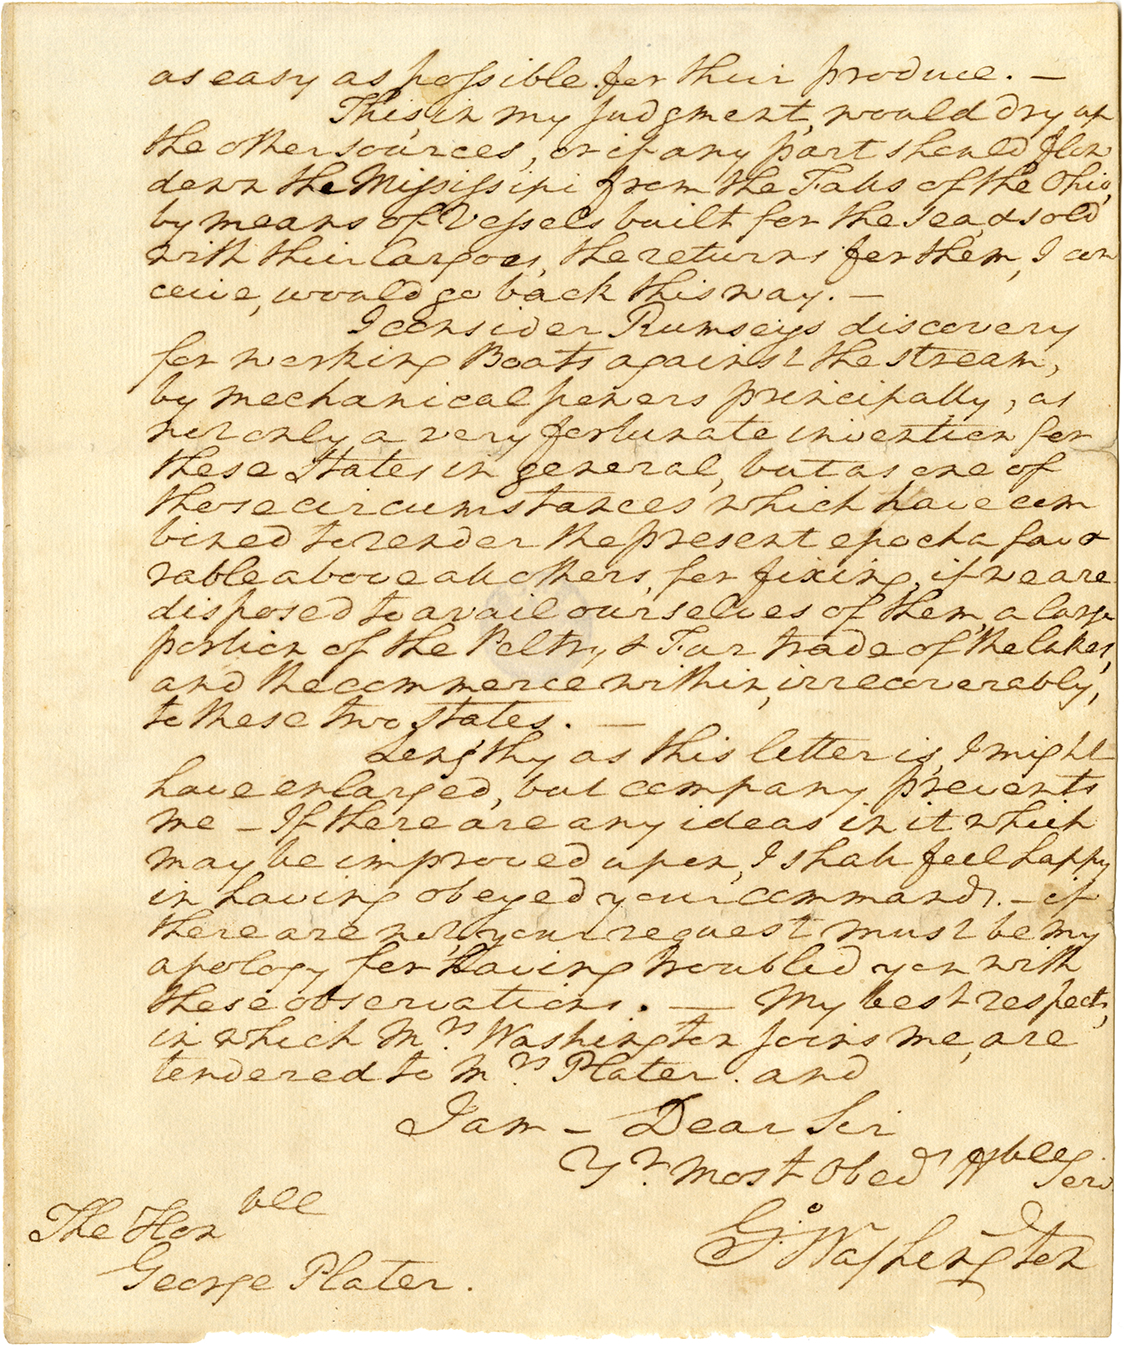 as easy as possible for their produce. —
This, in my judgment, would dry up
the other sources, or if any part should flow
down the Mississipi from the Falls of the Ohio,
by means of Vessels built for the Sea, & sold
with their Cargoes, the returns for them, I con
ceive, would go back this way. —
I consider Rumseys discovery
for working Boats against the stream,
by mechanical powers principally, as
not only a very fortunate invention for
these States in general, but as one of
those circumstances which have com
bined to render the present epocha favo
rable above all others, for fixing, if we are
disposed to avail ourselves of them, a large
portion of the Peltry & Fur trade of the lakes,
and the commerce within, irrecoverably,
to these two States. —
Lengthy as this letter is, I might
have enlarged, but company prevents
me – If there are any ideas in it which
may be improved upon, I shall feel happy
in having obeyed your commands. – if
there are not, your request must be my
apology for having troubled you with
these observations. — My best respects,
in which Mrs. Washington joins me, are
tendered to Mrs. Plater. and
I am – Dear Sir
Yr. most Obedt Hble Serv
Go: Washington
The Honble
George Plater.